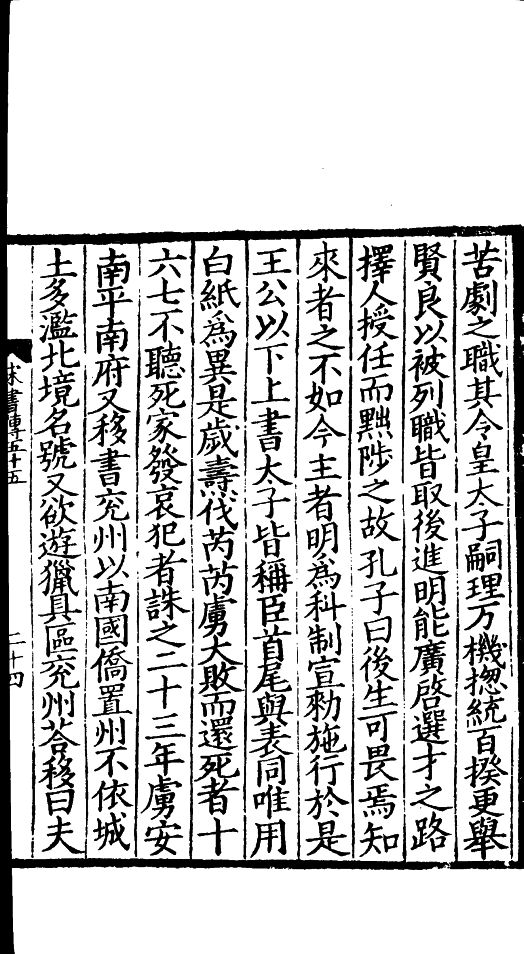 苦劇之職其令皇太子嗣理万機揔統百揆更舉
賢良以被列職皆取後進明能廣啓選才之路
擇人授任而黜陟之故孔子曰後生可畏焉知
來者之不如今主者明爲科制宣勑施行於是
王公以下上書太子皆稱臣首尾與表同唯用
白紙爲異是歲燾伐芮芮虜大敗而還死者十
六七不聽死家發哀犯者誅之二十三年虜安
南平南府又移書兖州以南國僑置州不依城
土多濫北境名號又欲遊獵具區兖州荅移曰夫
宋書傳五十五
二十四